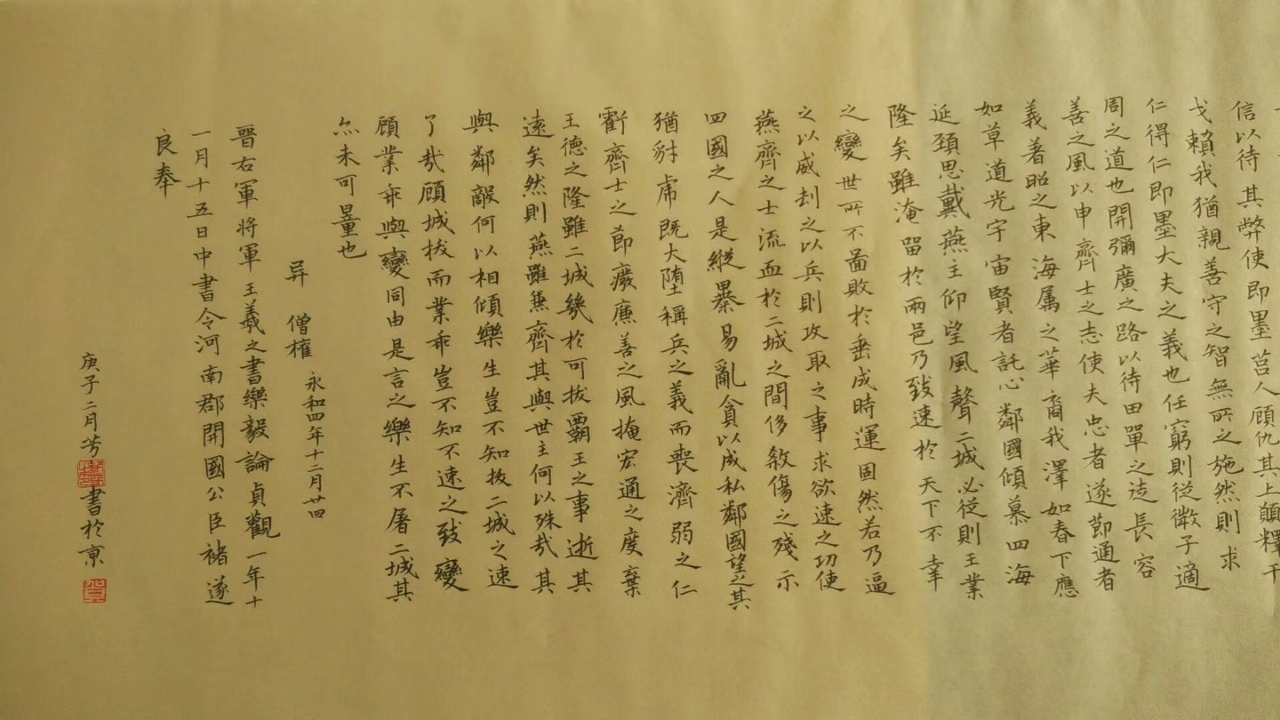 信以待其弊使即墨莒人顧仇其上願釋干
戈賴我猶親善守之智無所之施然則求
仁得仁即墨大夫之義也任窮則從微子適
周之道也開彌廣之路以待田單之徒長容
善之風以申齊士之志使夫忠者遂節通者
義著昭之東海属之華裔我澤如春下應
如草道光宇宙賢者託心鄰國傾慕四海
延頸思戴燕主仰望風聲二城必從則王業
隆矣雖淹留於兩邑乃致速於天下不幸
之變世所不啚敗於垂成時運固然若乃逼
之以威刦之以兵則攻取之事求欲速之功使
燕齊之士流血於二城之間侈殺傷之殘示
四國之人是縱暴易亂貪以成私鄰國望之其
猶豺虎既大墮稱兵之義而喪濟弱之仁
虧齊士之節廢廉善之風掩宏通之度棄
王德之隆雖二城幾於可拔霸王之事逝其
遠矣然則燕雖兼齊其與世主何以殊哉其
與鄰敵何以相傾樂生豈不知拔二城之速
了哉顧城拔而業乖豈不知不速之致變
顧業乖與變同由是言之樂生不屠二城其
亦未可量也
异 僧權 永和四年十二月廿四
晉右軍将軍王羲之書樂毅論貞觀一年十
一月十五日中書令河南郡開國公臣褚遂
良奉
庚子二月芳書於京